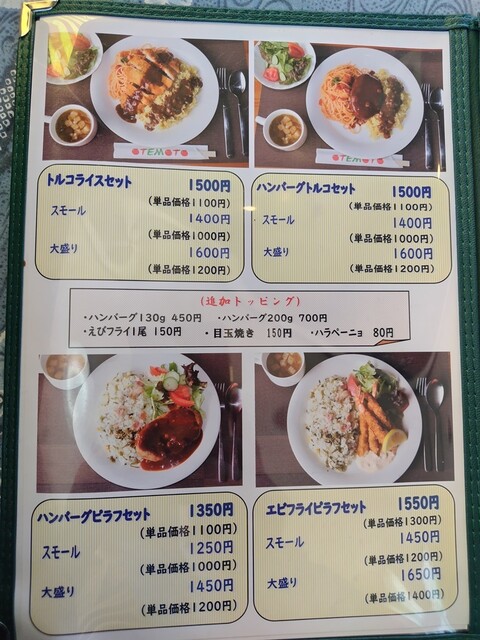 OTEMOTO
OTEMOTO
トルコライスセット 1500円
(単品価格1100円)
スモール 1400円
(単品価格1000円)
大盛り 1600円
(単品価格1200円)
ハンバーグトルコセット 1500円
(単品価格1100円)
スモール 1400円
(単品価格1000円)
大盛り 1600円
(単品価格1200円)
(追加トッピング)
・ハンバーグ130g 450円 ・ハンバーグ200g 700円
・えびフライ1尾 150円 ・目玉焼き 150円 ・ハラペーニョ 80円
ハンバーグピラフセット 1350円
(単品価格1100円)
スモール 1250円
(単品価格1000円)
大盛り 1450円
(単品価格1200円)
エビフライピラフセット 1550円
(単品価格1300円)
スモール 1450円
(単品価格1200円)
大盛り 1650円
(単品価格1400円)